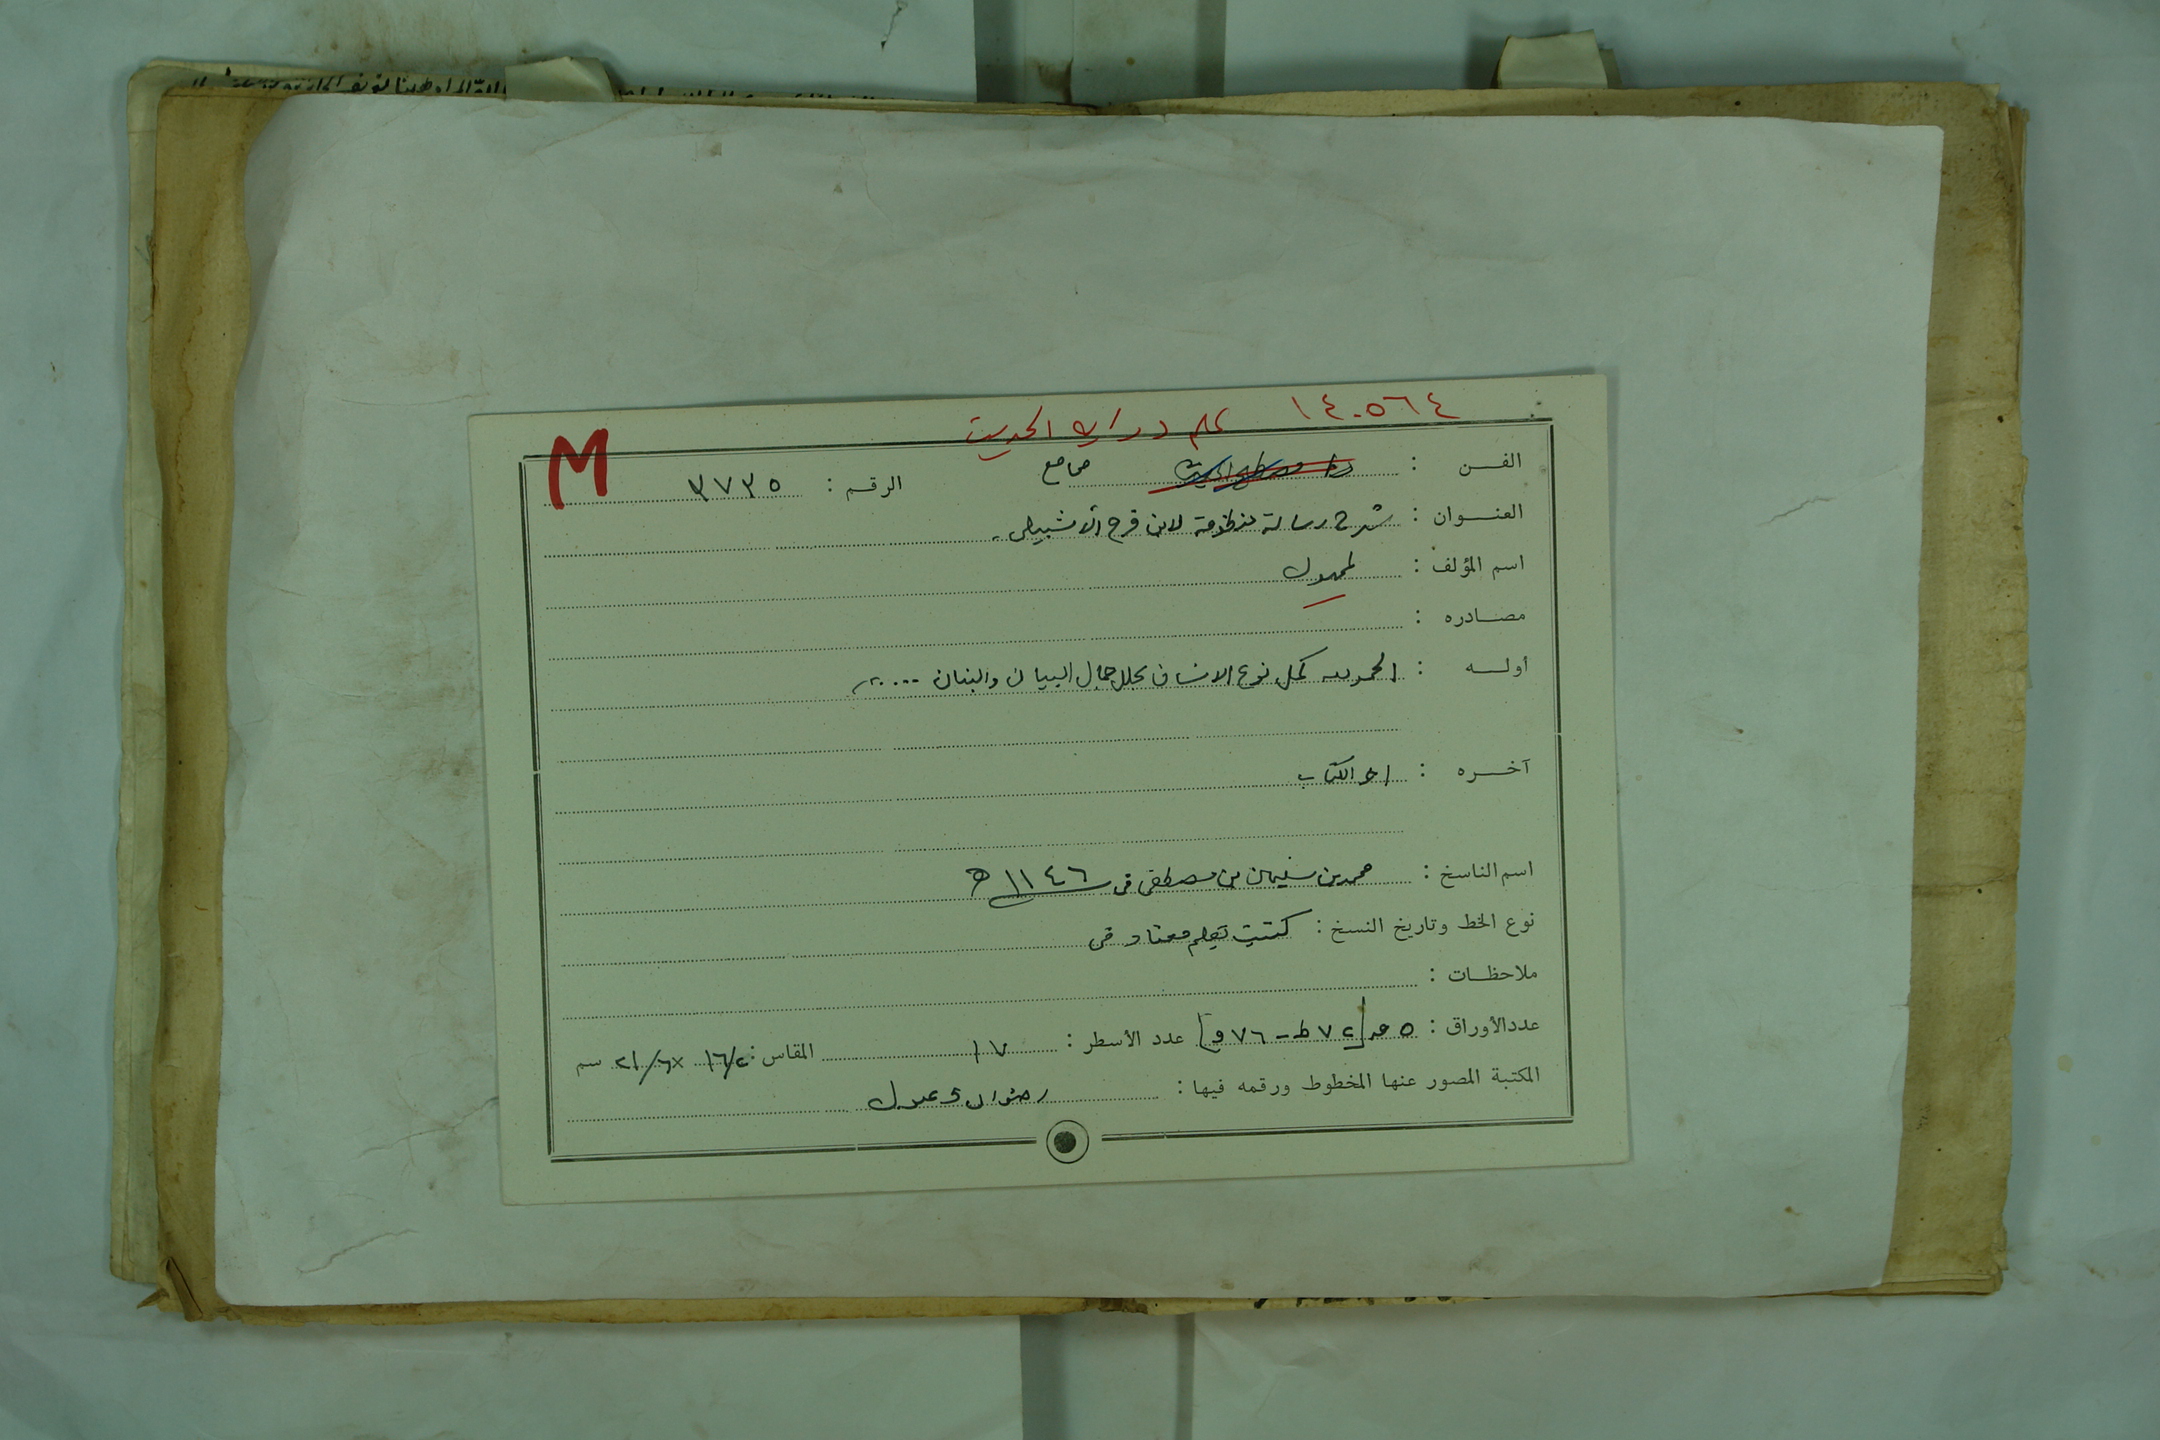 ١٤٠٥٦٤ علم دراية الحديث
M
الفن : مجامع الرقم : ٣٧٣٥
العنوان : شرح رسالة منظومة لابن فرج الاشبيلي .
اسم المؤلف : لمجهول
مصادره :
أوله : الحمدلله كمل نوع الانسان بحلل جمال البيان والبنان ....
آخره : اخر الكتاب
اسم الناسخ : محمد بن سليمان بن مصطفى في ١١٤٦ هـ
نوع الخط وتاريخ النسخ : كتبت بقلم معتاد في
ملاحظات :
عدد الأوراق : ٥ [٧٢ ظ - ٧٦ و] عدد الأسطر : ١٧ المقاس : ١٦/٢ × ٢١/٦ سم
المكتبة المصور عنها المخطوط ورقمه فيها : رضوان دعبول